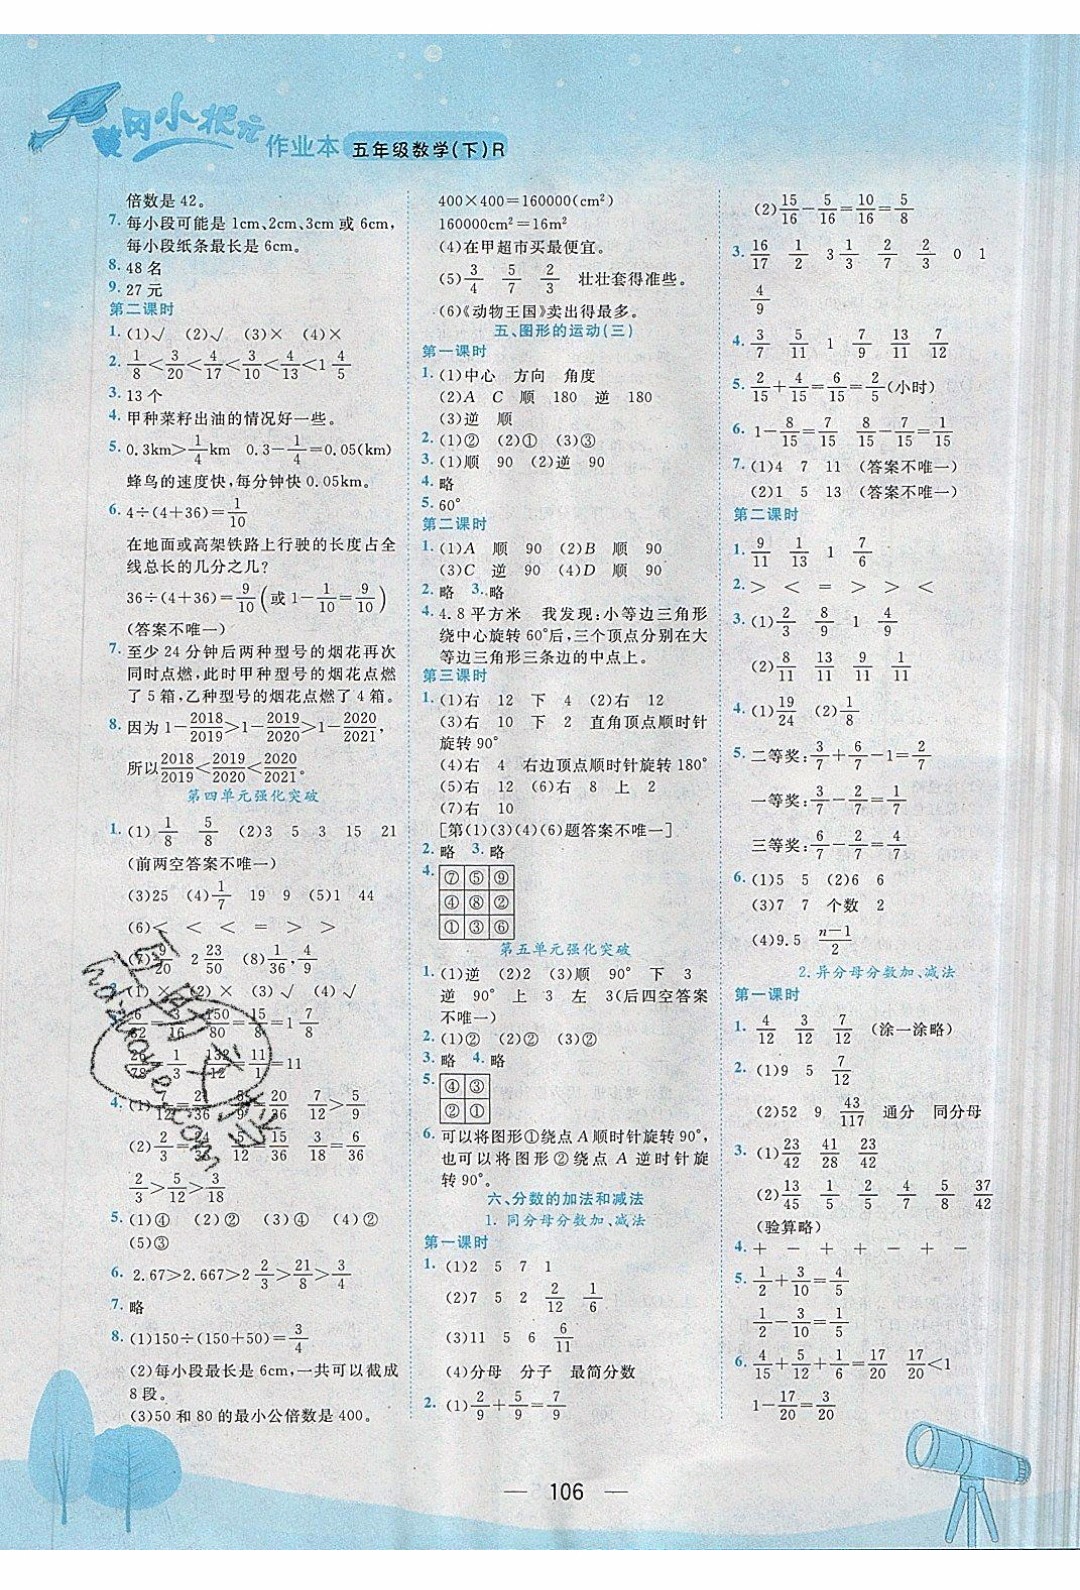 黄冈小状元
作业本 五年级数学(下)R
倍数是 42。
7. 每小段可能是 1cm、2cm、3cm 或 6cm,
每小段纸条最长是 6cm。
8. 48 名
9. 27 元
第二课时
1. (1)√ (2)√ (3)× (4)×
2. 1/8<3/20<4/17<3/10<4/13<1 4/5
3. 13 个
4. 甲种菜籽出油的情况好一些。
5. 0.3km>1/4km 0.3-1/4=0.05(km)
蜂鸟的速度快,每分钟快 0.05km。
6. 4÷(4+36)=1/10
在地面或高架铁路上行驶的长度占全
线总长的几分之几?
36÷(4+36)=9/10(或 1-1/10=9/10)
(答案不唯一)
7. 至少 24 分钟后两种型号的烟花再次
同时点燃,此时甲种型号的烟花点燃
了 5 箱,乙种型号的烟花点燃了 4 箱。
8. 因为 1-2018/2019>1-2019/2020>1-2020/2021,
所以 2018/2019<2019/2020<2020/2021。
第四单元强化突破
1. (1)1/8 5/8 (2)3 5 3 15 21
(前两空答案不唯一)
(3)25 (4)1/7 19 9 (5)1 44
(6)< < < = > >
(7)9/20 2 23/50 (8)1/36,4/9
(1)× (2)× (3)√ (4)√
150/80=15/8=1 7/8
1/3 132/12=11/1=11
4. (1)7/12 20/36 7/12>5/9
(2)2/3 5/12=15/36 3/18=6/36
2/3>5/12>3/18
5. (1)④ (2)② (3)④ (4)②
(5)③
6. 2.67>2.667>2 2/3>21/8>3/4
7. 略
8. (1)150÷(150+50)=3/4
(2)每小段最长是 6cm,一共可以截成
8 段。
(3)50 和 80 的最小公倍数是 400。
400×400=160000(cm²)
160000cm²=16m²
(4)在甲超市买最便宜。
(5)3/4 5/7 2/3 壮壮套得准些。
(6)《动物王国》卖出得最多。
五、图形的运动(三)
第一课时
1. (1)中心 方向 角度
(2)A C 顺 180 逆 180
(3)逆 顺
2. (1)② (2)① (3)③
3. (1)顺 90 (2)逆 90
4. 略
5. 60°
第二课时
1. (1)A 顺 90 (2)B 顺 90
(3)C 逆 90 (4)D 顺 90
2. 略 3. 略
4. 4.8 平方米 我发现:小等边三角形
绕中心旋转 60°后,三个顶点分别在大
等边三角形三条边的中点上。
第三课时
1. (1)右 12 下 4 (2)右 12
(3)右 10 下 2 直角顶点顺时针
旋转 90°
(4)右 4 右边顶点顺时针旋转 180°
(5)右 12 (6)右 8 上 2
(7)右 10
[第(1)(3)(4)(6)题答案不唯一]
2. 略 3. 略
4. ⑦ ⑤ ⑨
④ ⑧ ②
① ③ ⑥
第五单元强化突破
1. (1)逆 (2)2 (3)顺 90° 下 3
逆 90° 上 3 左 3(后四空答案
不唯一)
2. (1)② (2)② (3)②
3. 略 4. 略
5. ④ ③
② ①
6. 可以将图形①绕点 A 顺时针旋转 90°,
也可以将图形②绕点 A 逆时针旋
转 90°。
六、分数的加法和减法
1. 同分母分数加、减法
第一课时
1. (1)2 5 7 1
(2)7 5 2 2/12 1/6
(3)11 5 6 6/11
(4)分母 分子 最简分数
2. (1)2/9+5/9=7/9
(2)15/16-5/16=10/16=5/8
3. 16/17 1/2 3 1/3 2/7 2/3 0 1
4/9
4. 3/7 5/11 1 7/9 13/11 7/12
5. 2/15+4/15=6/15=2/5(小时)
6. 1-8/15=7/15 8/15-7/15=1/15
7. (1)4 7 11 (答案不唯一)
(2)1 5 13 (答案不唯一)
第二课时
1. 9/11 1/13 1 7/6
2. > < = > > <
3. (1)2/3 8/9 1 4/9
(2)8/11 13/11 9/11 1/11
4. (1)19/24 (2)1/8
5. 二等奖:3/7+6/7-1=2/7
一等奖:3/7-2/7=1/7
三等奖:6/7-2/7=4/7
6. (1)5 5 (2)6 6
(3)7 7 个数 2
(4)9.5 n-1/2
2. 异分母分数加、减法
第一课时
1. 4/12 3/12 7/12 (涂一涂略)
2. (1)9 5 7/12
(2)52 9 43/117 通分 同分母
3. (1)23/42 41/28 23/42
(2)13/45 1/5 2/5 4/7 5/8 37/42
(验算略)
4. + - + + - -
5. 1/2+3/10=4/5
1/2-3/10=1/5
6. 4/15+5/12+1/6=17/20 17/20<1
1-17/20=3/20
106